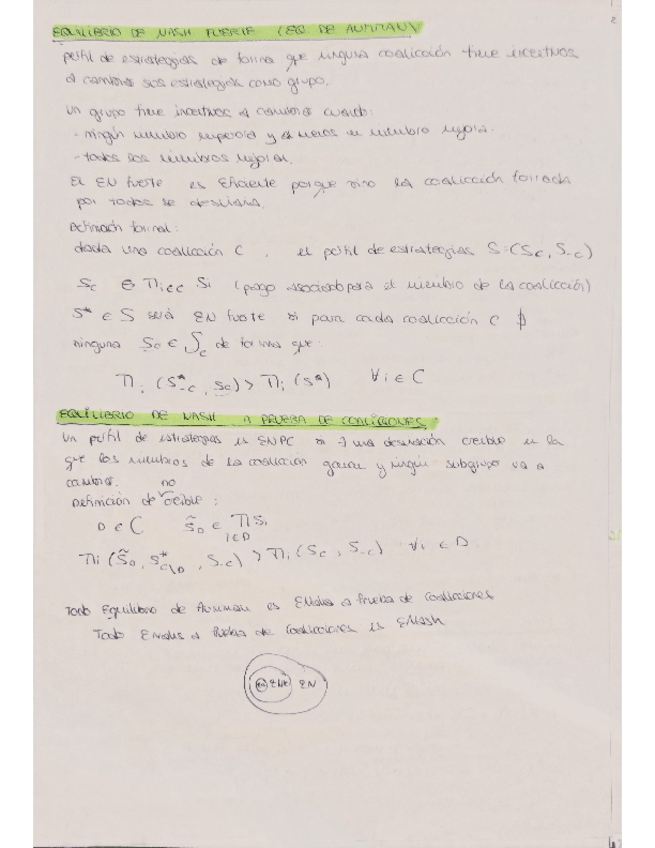 EQUILIBRIO DE NASH FUERTE (EQ. DE AUMMAN)
perfil de estrategias de forma que ninguna coalicción tiene incentivos
a cambiar sus estrategias como grupo.
Un grupo tiene incentivos a cambiar cuando:
- ningún miembro empeora y al menos un miembro mejora.
- todos los miembros mejoran.
El EN fuerte es eficiente porque sino la coalicción formada
por todos se desviaría.
Definición formal:
dada una coalicción C , el perfil de estrategias S=(Sc, S-c)
Sc ∈ Π i∈C Si (pago asociado para el miembro de la coalicción)
S* ∈ S será EN fuerte si para cada coalicción C ∄
ninguna Sc ∈ Sc de forma que:
Πi (S*-c, Sc) > Πi (S*) ∀i ∈ C
EQUILIBRIO DE NASH A PRUEBA DE COALICIONES:
Un perfil de estrategias es ENPC si ∄ una desviación creíble en la
que los miembros de la coalicción ganen y ningún subgrupo va a
cambiar. no
Definición de creíble:
D ∈ C S̃D ∈ Π i∈D Si
Πi (S̃D, S*C\D, S-c) > Πi (Sc, S-c) ∀i ∈ D
Todo Equilibrio de Aumman es ENash a Prueba de Coaliciones
Todo ENash a Prueba de Coaliciones es ENash
EN